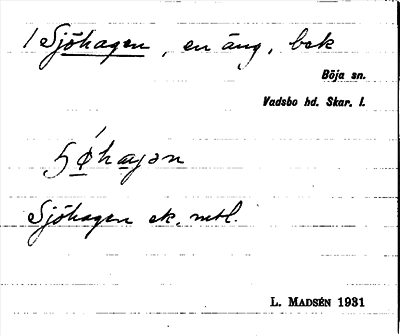 1 Sjöhagen, en äng, bek
Böja sn.
Vadsbo hd. Skar. l.
Sjöhagen ek. mtl.
L. MADSÉN 1931